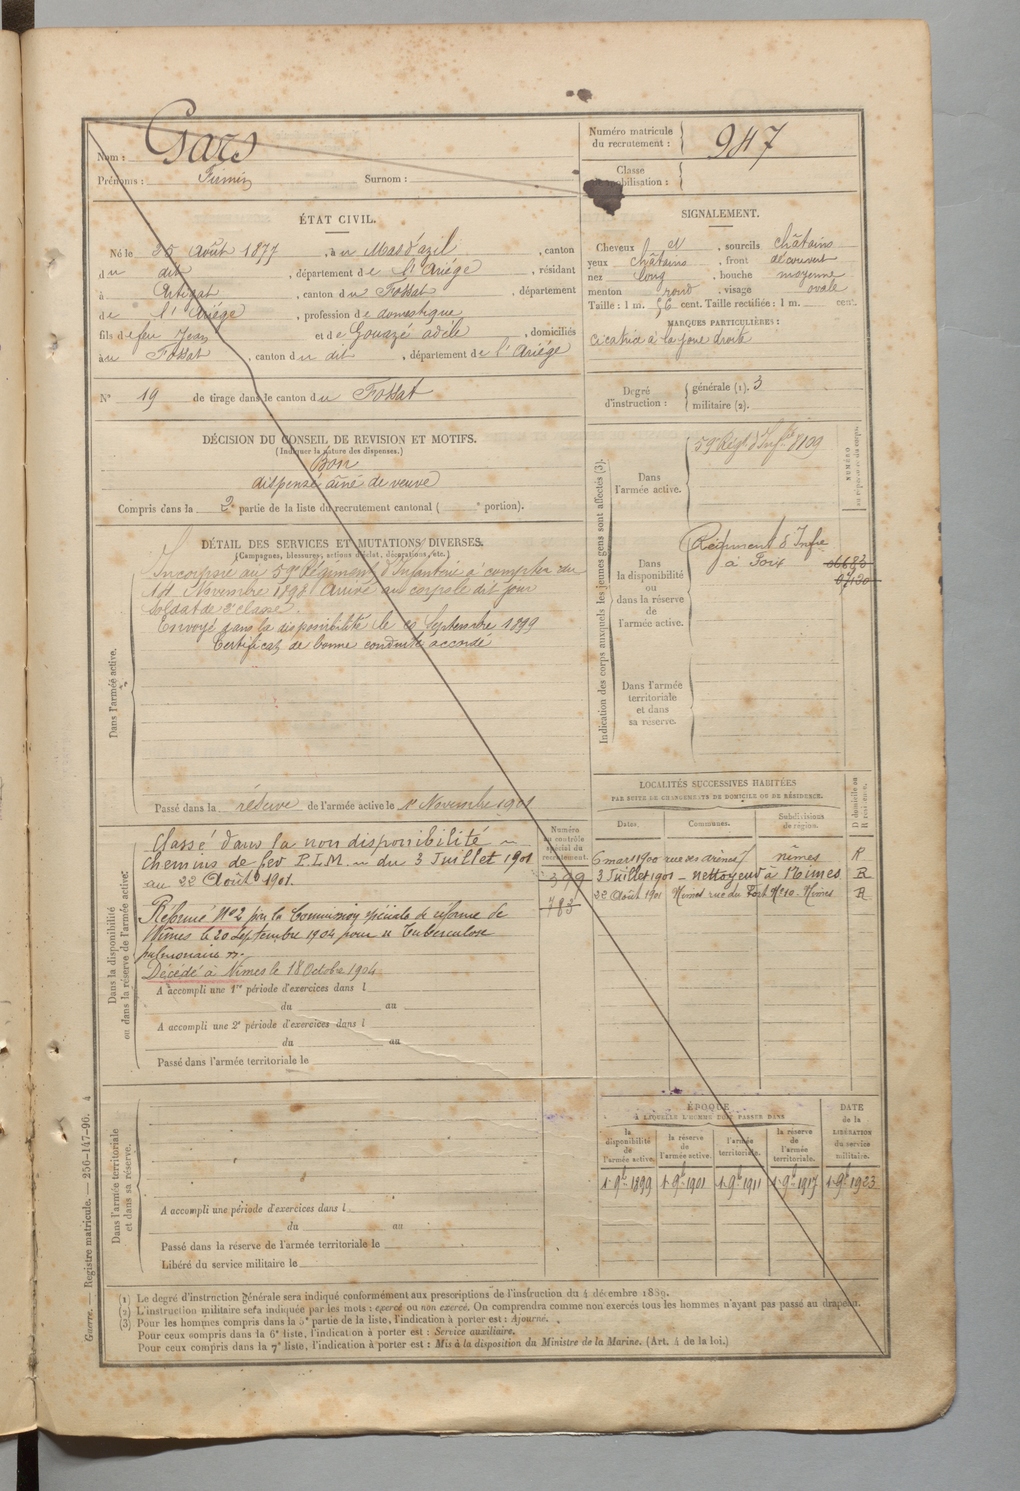 Nom : Gars
Prénoms : Firmin Surnom :
Numéro matricule du recrutement : 947
Classe de mobilisation :
ÉTAT CIVIL.
Né le 25 Août 1877, à u Mas d'azil, canton
du dit, département de l'Ariége, résidant
à Artigat, canton du Fossat, département
de l'Ariége, profession de domestique
fils de feu Jean et de Gouazé adèle, domiciliés
à u Fossat, canton du dit, département de l'Ariége
N° 19 de tirage dans le canton du Fossat
DÉCISION DU CONSEIL DE REVISION ET MOTIFS.
(Indiquer la nature des dispenses.)
Bon
dispensé aîné de veuve
Compris dans la 2e partie de la liste du recrutement cantonal ( e portion).
SIGNALEMENT.
Cheveux et, sourcils châtains
yeux châtains, front découvert
nez long, bouche moyenne
menton rond, visage ovale
Taille : 1 m. 56 cent. Taille rectifiée : 1 m. cent.
MARQUES PARTICULIÈRES :
cicatrice à la joue droite
Degré d'instruction : générale (1). 3
militaire (2).
DÉTAIL DES SERVICES ET MUTATIONS DIVERSES.
(Campagnes, blessures, actions d'éclat, décorations, etc.)
Dans l'armée active.
Incorporé au 59e Régiment d'Infanterie à compter du
14 Novembre 1898 Arrivé au corps le dit jour
Soldat de 2e classe.
Envoyé dans la disponibilité le Septembre 1899
Certificat de bonne conduite accordé
Passé dans la réserve de l'armée active le 1er Novembre 1901
Indication des corps auxquels les jeunes gens sont affectés (3).
NUMÉRO au répertoire du corps.
Dans l'armée active.
59e Régt d'Infie 8109
Dans la disponibilité ou dans la réserve de l'armée active.
Régiment d'Infie
à Foix
06683
07130
Dans l'armée territoriale et dans sa réserve.
Dans la disponibilité ou dans la réserve de l'armée active.
Numéro au contrôle spécial du recrutement.
Classé dans la non disponibilité
chemins de fer P.L.M. du 3 Juillet 1901
au 22 Août 1901.
399
783
Réformé N°2 par la Commission spéciale de réforme de
Nîmes le 20 Septembre 1904 pour « Tuberculose
pulmonaire ».
Décédé à Nîmes le 18 Octobre 1904
A accompli une 1re période d'exercices dans l
du au
A accompli une 2e période d'exercices dans l
du au
Passé dans l'armée territoriale le
LOCALITÉS SUCCESSIVES HABITÉES
PAR SUITE DE CHANGEMENTS DE DOMICILE OU DE RÉSIDENCE.
Dates. Communes. Subdivisions de région. D domicile ou R résidence.
6 mars 1900 rue des arènes 7 nîmes R
3 Juillet 1901 - nettoyeur à Nîmes R
22 Août 1901 Nîmes rue du Fort N° 10. Nîmes R
Dans l'armée territoriale et dans sa réserve.
A accompli une période d'exercices dans l
du au
Passé dans la réserve de l'armée territoriale le
Libéré du service militaire le
ÉPOQUE
A LAQUELLE L'HOMME DOIT PASSER DANS
la disponibilité de l'armée active. la réserve de l'armée active. l'armée territoriale. la réserve de l'armée territoriale. DATE de la LIBÉRATION du service militaire.
1. 9bre 1899 1. 9bre 1901 1. 9bre 1911 1. 9bre 1917 1. 9bre 1923
Guerre. — Registre matricule. — 256-147-90. 4
(1) Le degré d'instruction générale sera indiqué conformément aux prescriptions de l'instruction du 4 décembre 1889.
(2) L'instruction militaire sera indiquée par les mots : exercé ou non exercé. On comprendra comme non exercés tous les hommes n'ayant pas passé au drapeau.
(3) Pour les hommes compris dans la 5e partie de la liste, l'indication à porter est : Ajourné.
Pour ceux compris dans la 6e liste, l'indication à porter est : Service auxiliaire.
Pour ceux compris dans la 7e liste, l'indication à porter est : Mis à la disposition du Ministre de la Marine. (Art. 4 de la loi.)